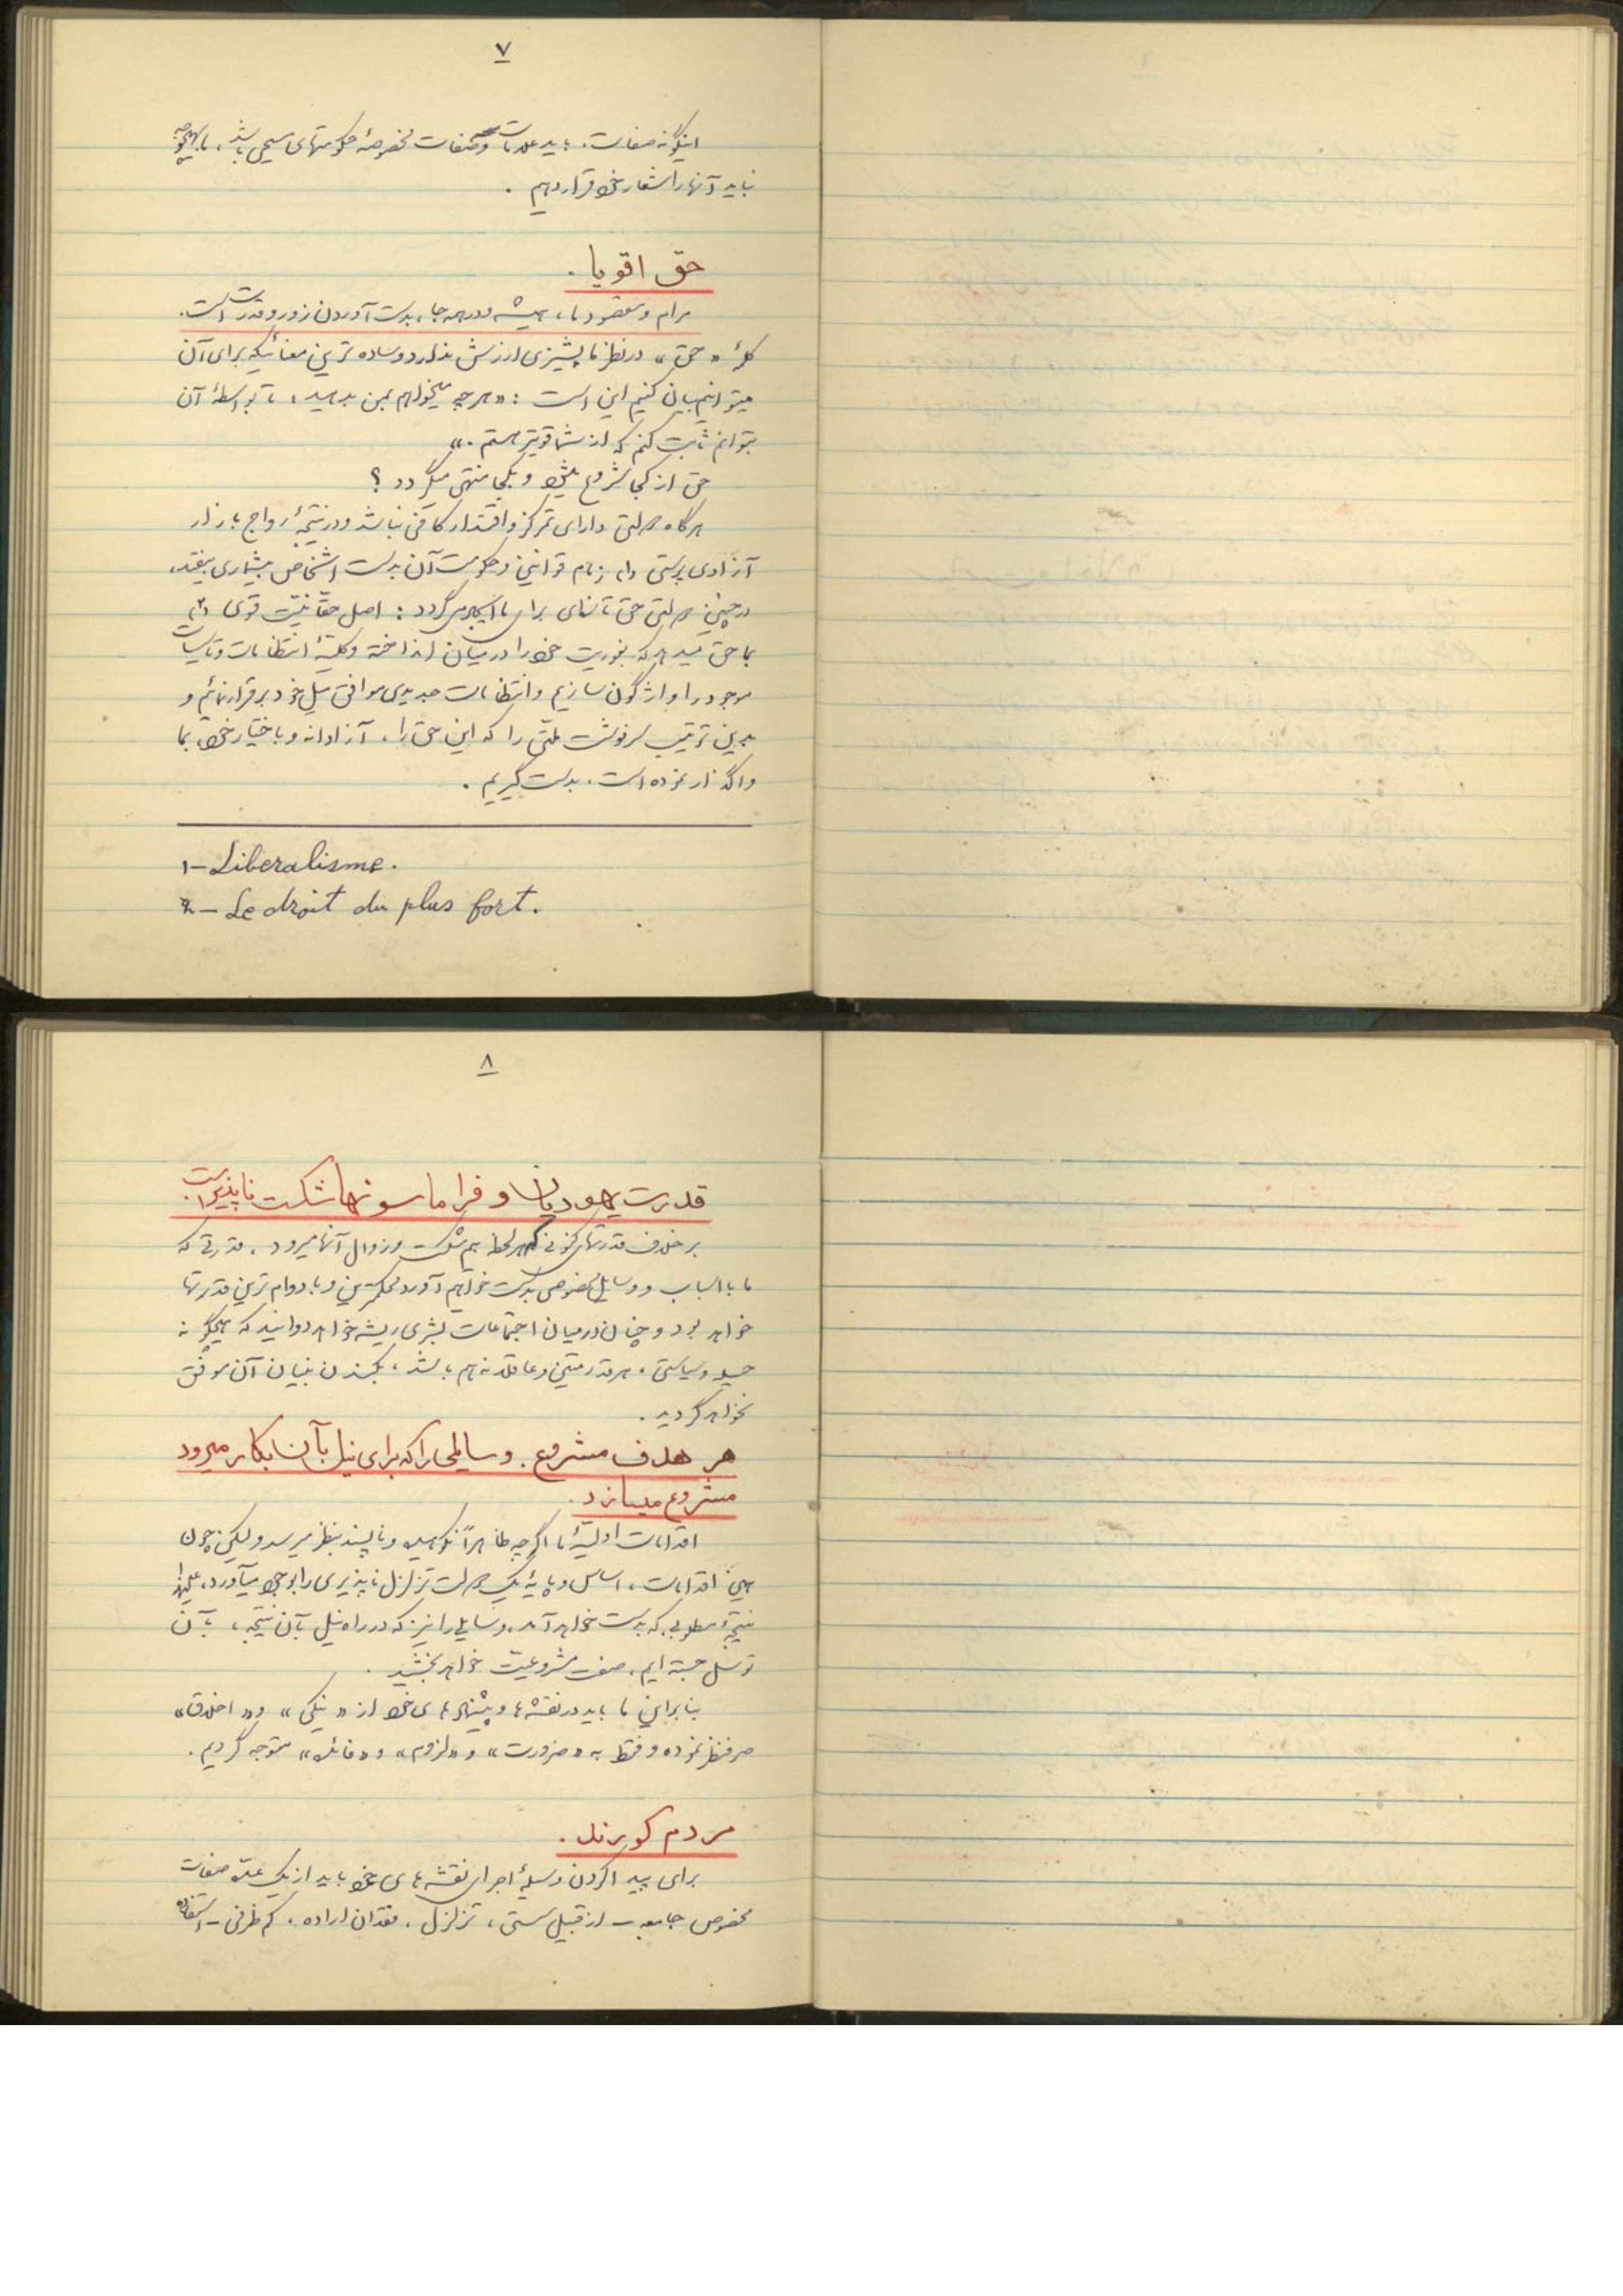 ۷
اینگونه صفات، باید علامات و صفات مخصوصهٔ حکومتهای مسیحی باشد، ما بهیچوجه
نباید آنها را شعار خود قرار دهیم .
حق اقویا .
مرام و مقصود ما، همیشه و در همه جا، بدست آوردن زور و قدرت است.
کلمهٔ «حق» در نظر ما پشیزی ارزش ندارد و ساده ترین معنائیکه برای آن
میتوانیم بیان کنیم این است : «هرچه میخواهم بمن بدهید، تا بواسطهٔ آن
بتوانم ثابت کنم که از شما قویتر هستم .»
حق از کجا شروع میشود و بکجا منتهی میگردد ؟
هرگاه دولتی دارای تمرکز و اقتدار کافی نباشد و در نتیجهٔ رواج بازار
آزادی پرستی (۱) زمام قوانین و حکومت آن بدست اشخاص بیشماری بیفتد،
در چنین دولتی حق تازه‌ای برای ما ایجاد میگردد : اصل حقانیت قوی (۲)
بما حق میدهد که بفوریت خود را در میان انداخته و کلیهٔ انتظامات و تأسیسات
موجود را واژگون سازیم و انتظامات جدیدی موافق میل خود برقرار نمائیم و
بدین ترتیب سرنوشت ملتی را که این حق را، آزادانه و باختیار خود، بما
واگذار نموده است، بدست گیریم .
۱- Liberalisme.
۲- Le droit du plus fort.
۸
قدرت یهودیان و فراماسونها شکست ناپذیر است.
بر خلاف قدرتهای کنونی که هر لحظه بیم شکست و زوال آنها میرود، قدرتی که
ما با اسباب و وسایل مخصوصی بدست خواهیم آورد محکمترین و با دوام ترین قدرتها
خواهد بود و چنان در میان اجتماعات بشری ریشه خواهد دوانید که هیچگونه
حیله و سیاستی، هر قدر متین و عاقلانه هم باشد، بکندن بنیان آن موفق
نخواهد گردید .
هر هدف مشروع، وسایلی را که برای نیل بآن بکار میرود
مشروع میسازد .
اقدامات اولیهٔ ما اگرچه ظاهراً نکوهیده و ناپسند بنظر میرسد ولیکن چون
همین اقدامات، اساس و پایهٔ یک دولت تزلزل ناپذیری را بوجود میآورد، علیهذا
نتیجهٔ مطلوبی که بدست خواهد آمد، وسایلی را نیز که در راه نیل بآن نتیجه، بآن
توسل جسته ایم، صفت مشروعیت خواهد بخشید .
بنابراین ما باید در نقشه ها و پیشنهادهای خود از «نیکی» و «اخلاق»
صرفنظر نموده و فقط به «ضرورت» و «لزوم» و «فائده» متوجه گردیم .
مردم کورند .
برای پیدا کردن وسیلهٔ اجرای نقشه های خود باید از یک عده صفات
مخصوص جامعه – از قبیل سستی، تزلزل، فقدان اراده، کم ظرفی – استفاده